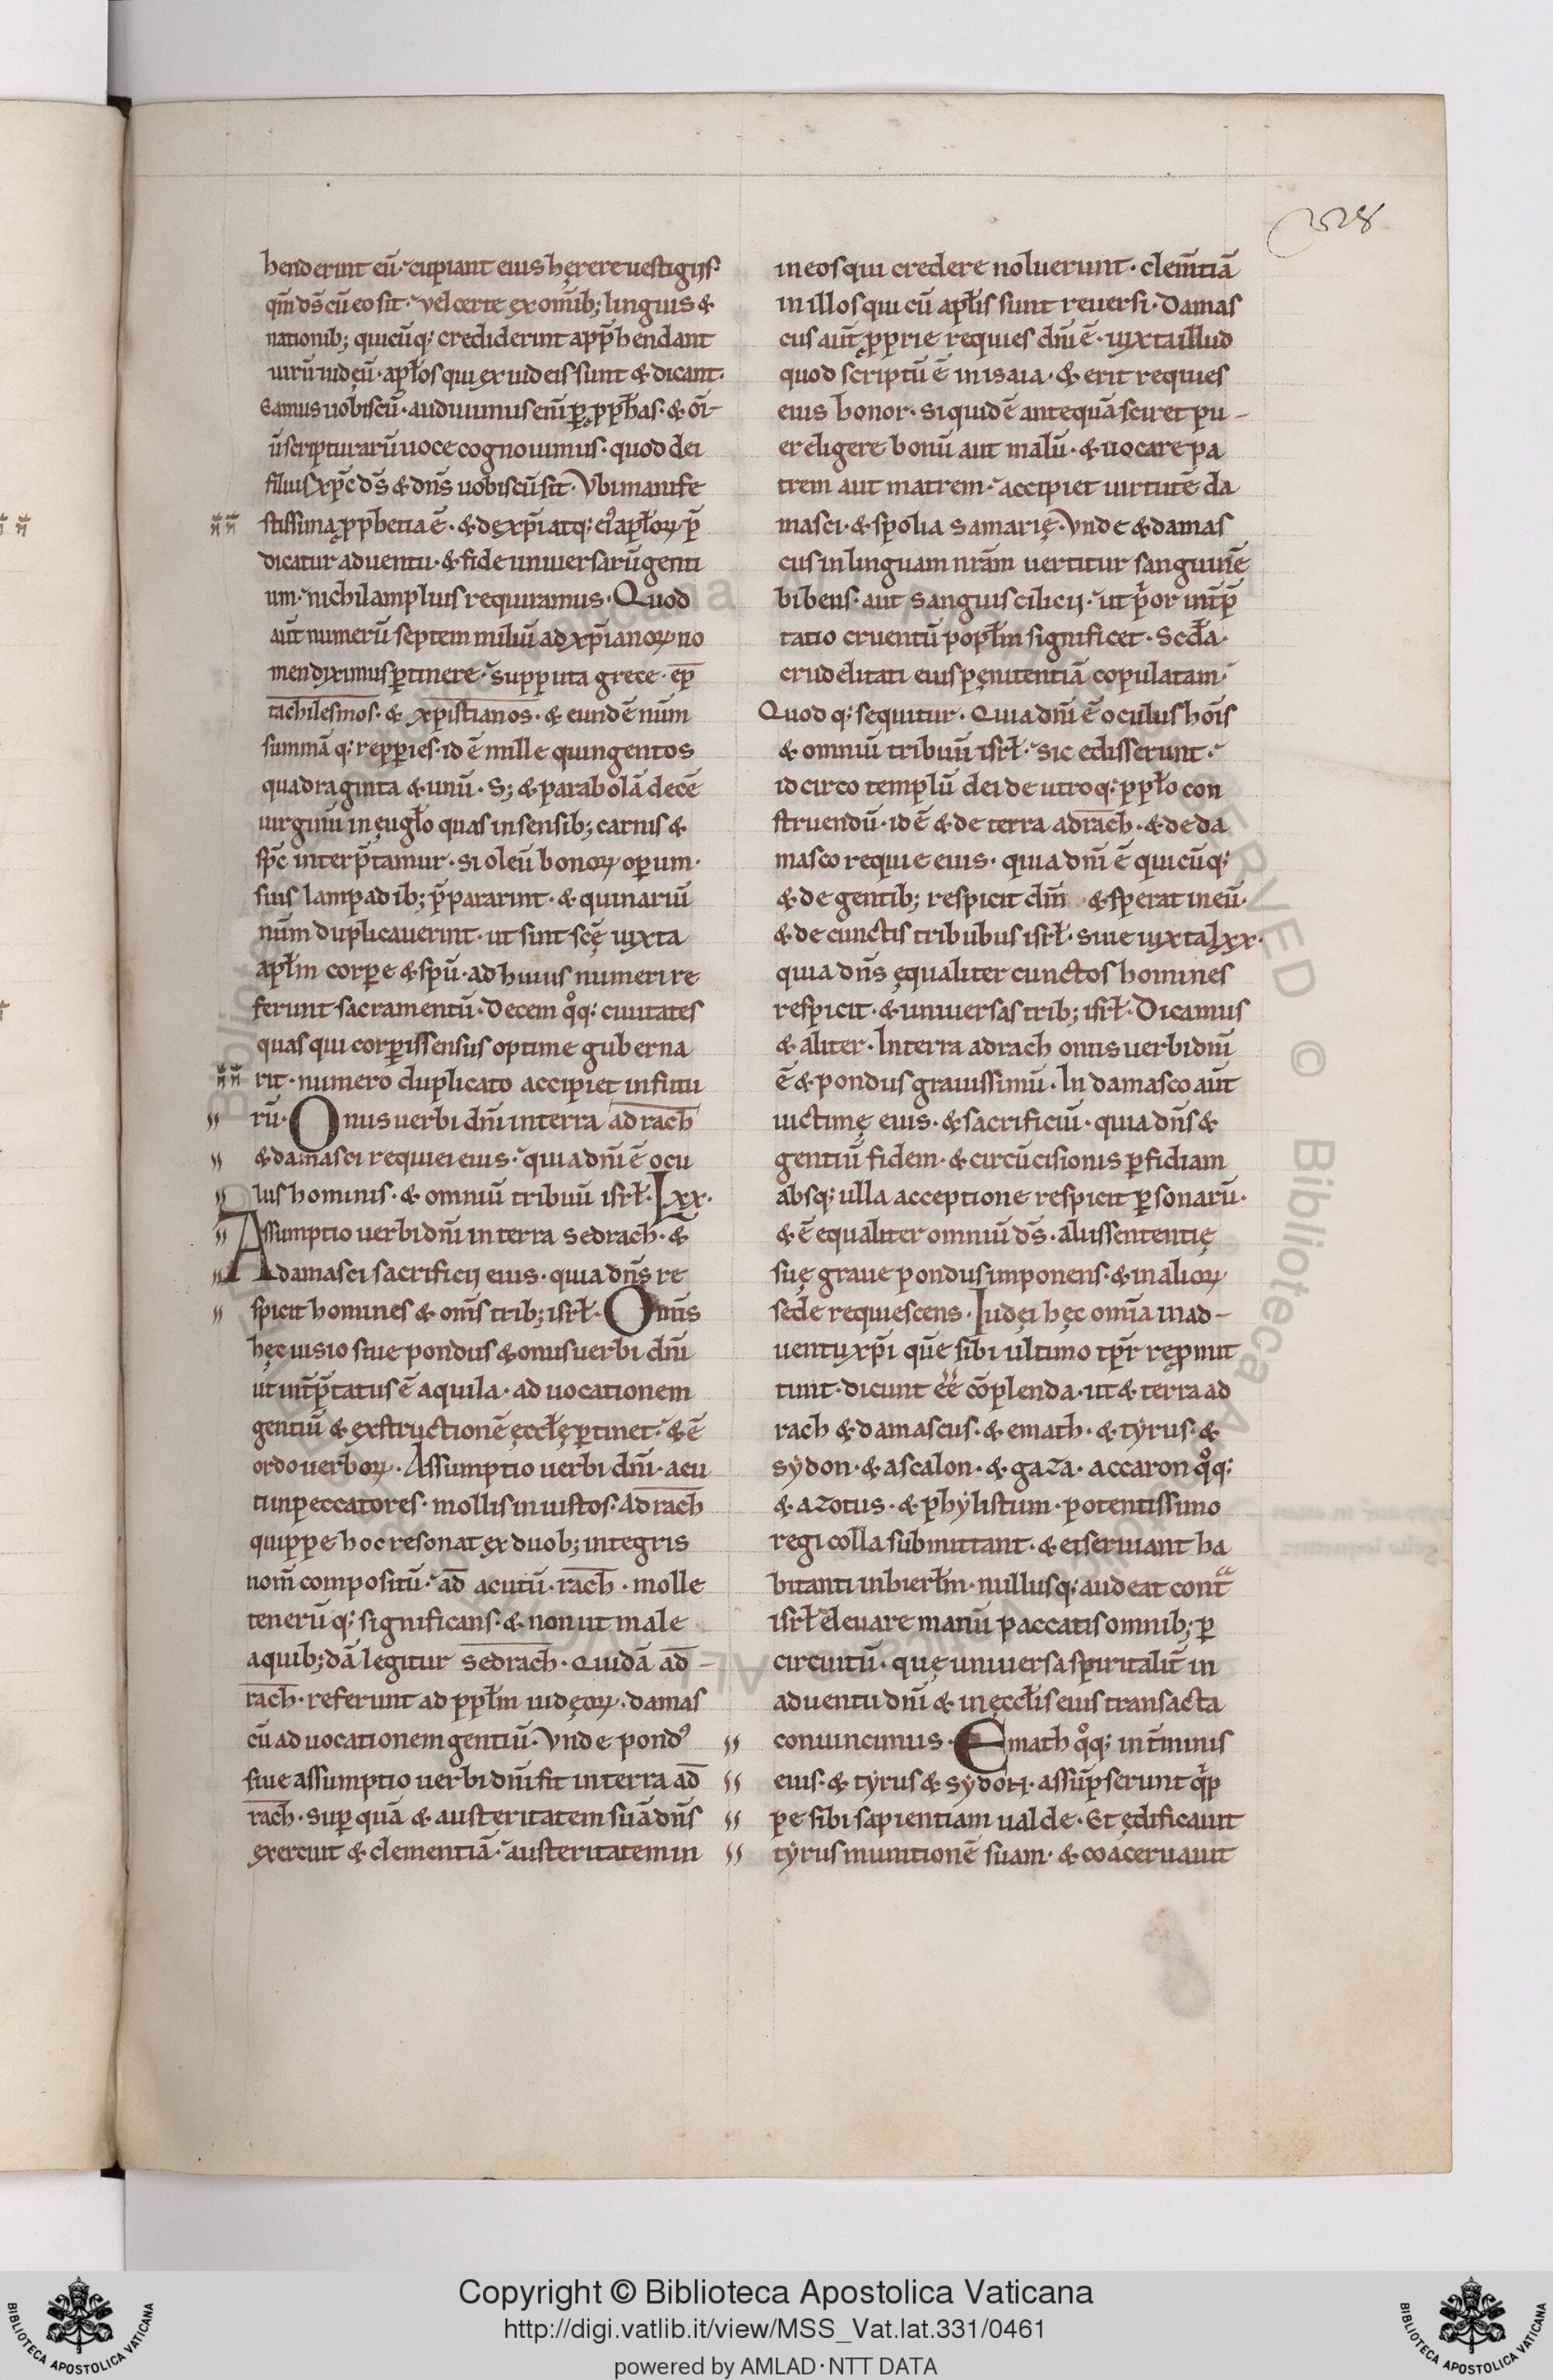 228
henderint eū. cupiant eius hęrere uestigijs.
qm̄ ds̄ cū eo sit. vel certe ex om̄ib; linguis &
nationib; quicūq; crediderint appr̄hendant
uirū iudęū. apłos qui ex iudeis sunt & dicant.
Eamus uobiscū. audiuimus eni ꝑ pp̄has. & om̄
iū scripturarū uoce cognouimus. quod dei
filius xp̄c ds̄ & dn̄s uobiscū sit. Vbi manife
stissima ꝓphetia ē. & de xp̄i atq; ei⁹ apłoꝝ p̄
dicatur aduentu. & fide uniuersarū genti
um. nichil amplius requiramus. Quod
aūt numerū septem milium ad xp̄ianoꝝ no
men diximus ꝑtinere. supputa grece. ep̄
tachilesmos. & xpistianos. & eundē num̄
summā q; repperies. id ē mille quingentos
quadraginta & unū. S; & parabolā decē
uirginū in ęugło quas in sensib; carnis &
sp̄c interp̄tamur. si oleū bonoꝝ operum.
suis lampadib; p̄pararint. & quinariū
num̄ duplicauerint. ut sint scę̄ iuxta
apłm corꝑe & spū. ad huius numeri re
ferunt sacramentū. Decem qͦq; ciuitates
quas qui corꝑis sensus optime guberna
rit. numero duplicato accipiet in futu
rū. Onus uerbi dn̄i in terra adrach
& damasci requiei eius. quia dn̄i ē ocu
lus hominis. & omniū tribuū isrł. Lxx.
Assumptio uerbi dn̄i in terra sedrach. &
damasci sacrificij eius. quia dn̄s re
spicit homines & om̄s trib; isrł. Om̄is
hęc uisio siue pondus & onus uerbi dn̄i
ut int̄p̄tatus ē aquila. ad uocationem
gentiū & exstructionē ęccłę ꝑtinet. & ē
ordo uerboꝝ. Assumptio uerbi dn̄i. acu
ti in peccatores. mollis in iustos. Adrach
quippe hoc resonat ex duob; integris
nom̄ compositū. ad acutū. rach. molle
tenerū q; significans. & non ut male
a quib;dā legitur sedrach. Quidā ad-
rach. referunt ad ppłm iudęoꝝ. damas
cū ad uocationem gentiū. Vnde pond⁹
siue assumptio uerbi dn̄i fit in terra ad
rach. Suꝑ quā & austeritatem suā dn̄s
exercuit & clementiā. austeritatem in
in eos qui credere noluerunt. clem̄tiā
in illos qui cū apłis sunt reuersi. Damas
cus aūt ꝓprie requies dn̄i ē. iuxta illud
quod scriptū ē in isaia. & erit requies
eius honor. Siquidē antequā sciret pu-
er eligere bonū aut malū. & uocare pa
trem aut matrem. accipiet uirtutē da
masci. & spolia samarię. Vnde & damas
cus in linguam nr̄am uertitur sanguinē
bibens. aut sanguis cilicij. ut p̄or int̄p̄
tatio cruentū popłm significet. Scd̄a.
crudelitati eius pęnitentiā copulatam.
Quod q; sequitur. Quia dn̄i ē oculus hōis
& omniū tribuū isrł. sic edisserunt.
idcirco templū dei de utroq; ppło con
struendū. id ē & de terra adrach. & de da
masco requie eius. quia dn̄i ē quicūq;
& de gentib; respicit dm̄ & sperat in eū.
& de cunctis tribubus isrł. Siue iuxta lxx.
quia dn̄s ęqualiter cunctos homines
respicit. & uniuersas trib; isrł. Dicamus
& aliter. In terra adrach onus uerbi dn̄i
ē & pondus grauissimū. In damasco aūt
uictimę eius. & sacrificiū. quia dn̄s &
gentiū fidem. & circūcisionis ꝑfidiam
absq; ulla acceptione respicit ꝑsonarū.
& ē equaliter omniū ds̄. alius sententię
suę graue pondus imponens. & in alioꝝ
sede requiescens. Iudęi hęc omīa in ad-
uentu xp̄i quē sibi ultimo tp̄r reꝓmit
tunt. dicunt ēē cōplenda. ut & terra ad
rach & damascus. & emath. & tyrus. &
sydon. & ascalon. & gaza. accaron qͦq;
& azotus. & phylistum. potentissimo
regi colla submittant. & ei seruiant ha
bitanti in hierłm. nullusq; audeat cont̄ͣ
isrł eleuare manū paccatis omnib; ꝑ
circuitū. quę uniuersa spiritalit̄ in
aduentu dn̄i & in ęccłis eius transacta
conuincimus. Emath qͦq; in t̄minis
eius. & tyrus & sydon. assūpserunt qͥp
pe sibi sapientiam ualde. Et ędificauit
tyrus munitionē suam. & coaceruauit
Copyright © Biblioteca Apostolica Vaticana
http://digi.vatlib.it/view/MSS_Vat.lat.331/0461
powered by AMLAD·NTT DATA
BIBLIOTECA APOSTOLICA VATICANA
BIBLIOTECA APOSTOLICA VATICANA